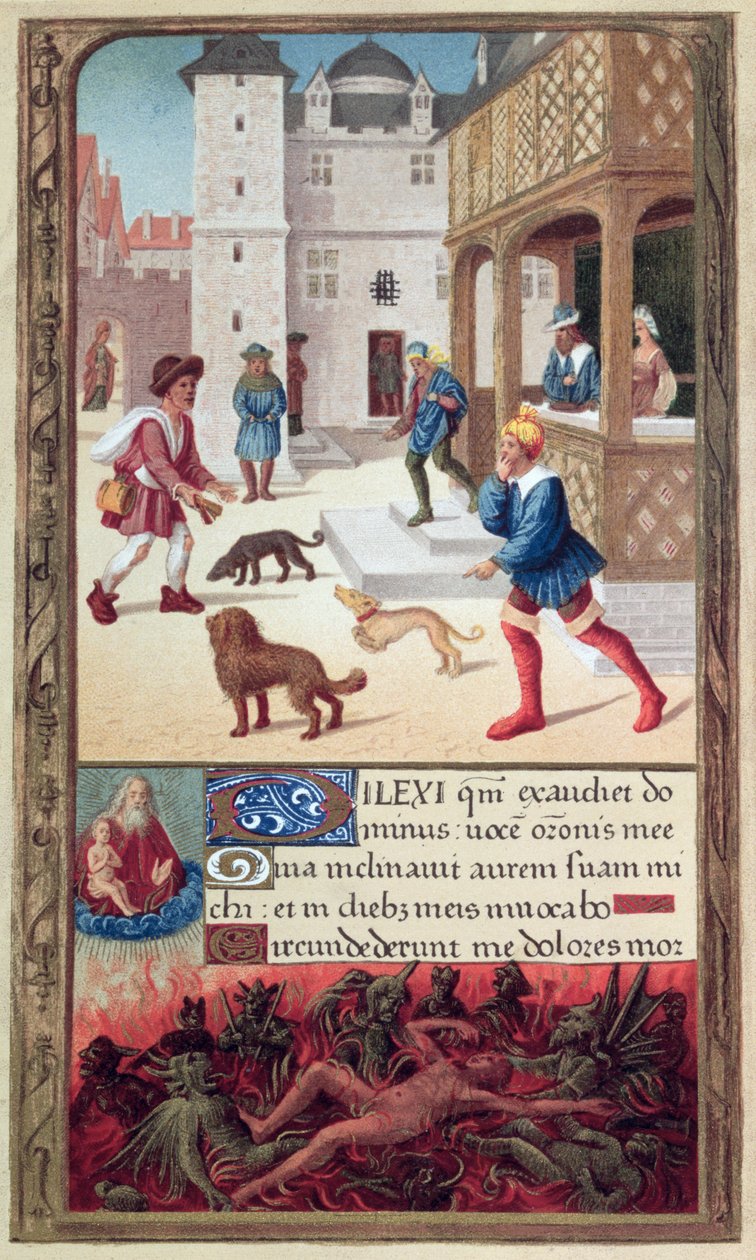 DILEXI qm̄ exaudiet do
minus: uocē or̄onis mee
Quia inclinauit aurem suam mi
chi: et in diebꝫ meis inuocabo
Circundederunt me dolores mor